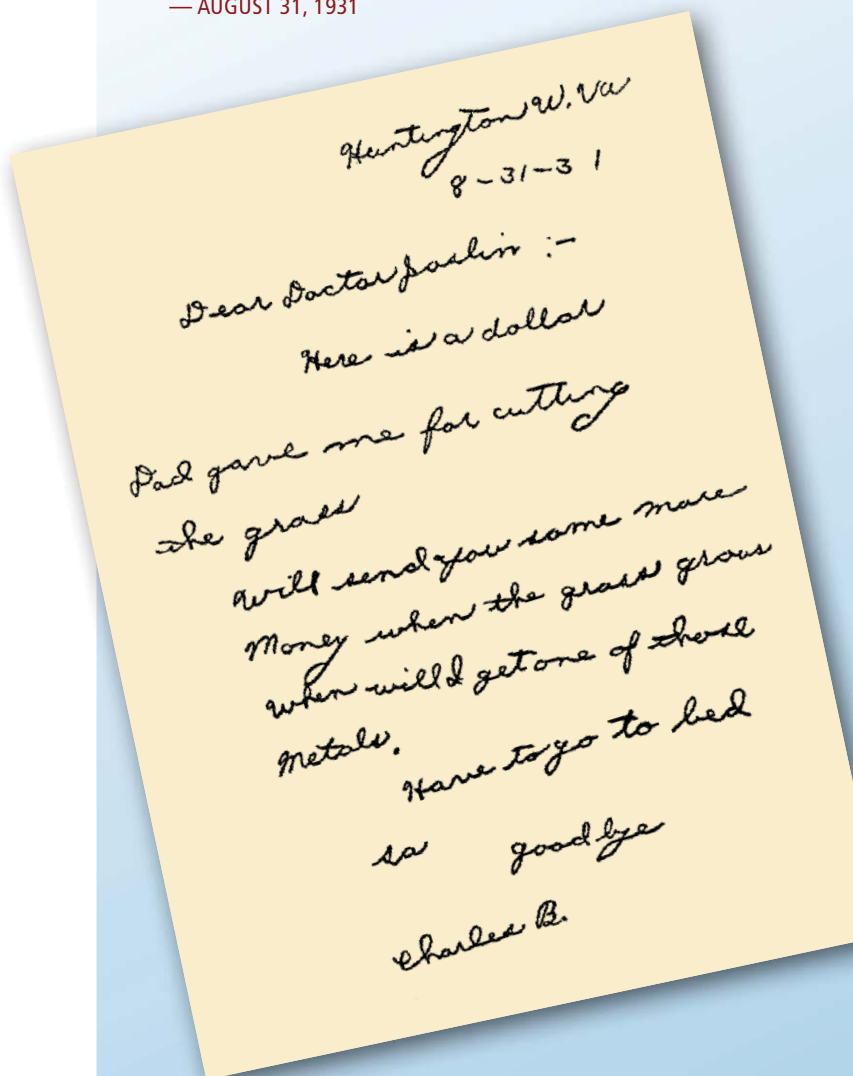 — AUGUST 31, 1931
Huntington W. Va
8-31-31
Dear Doctor Joslin :-
Here is a dollar
Dad gave me for cutting
the grass
Will send you some more
Money when the grass grows
when will I get one of those
Metals.
Have to go to bed
so good bye
Charles B.